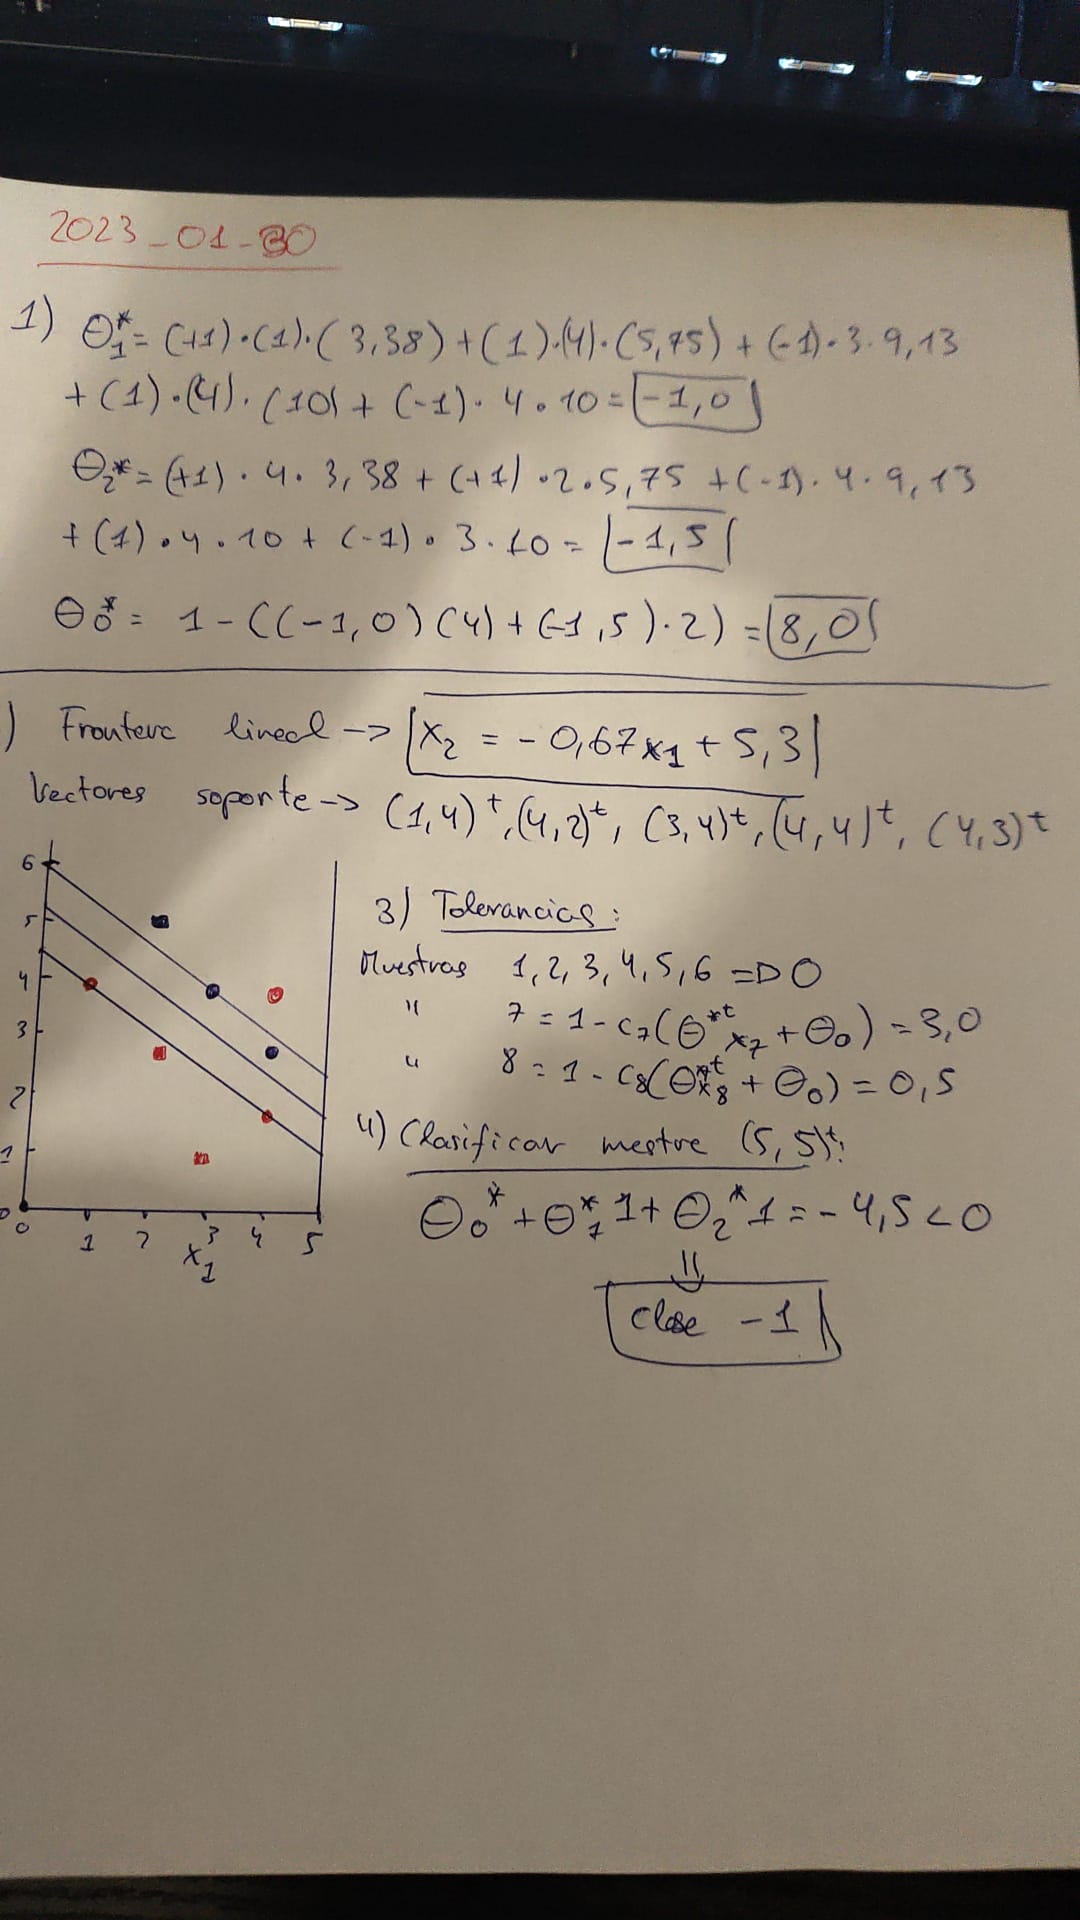 2023-01-30
1) Θ₁* = (+1)·(1)·(3,38)+(1)·(4)·(5,75)+(-1)·3·9,13
+(1)·(4)·(10)+(-1)·4·10=-1,0
Θ₂* = (+1)·4·3,38+(+1)·2·5,75+(-1)·4·9,13
+(1)·4·10+(-1)·3·10=-1,5
Θ₀* = 1-((-1,0)(4)+(-1,5)·2)=8,0
) Frontera lineal -> x₂ = -0,67x₁+5,3
Vectores soporte -> (1,4)ᵗ,(4,2)ᵗ,(3,4)ᵗ,(4,4)ᵗ,(4,3)ᵗ
6
5
4
3
2
1
0
0 1 2 3 4 5
x₁
3) Tolerancias:
Muestras 1,2,3,4,5,6 => 0
" 7 = 1-c₇(Θ*ᵗx₇+Θ₀) = 3,0
" 8 = 1-c₈(Θ*ᵗx₈+Θ₀) = 0,5
4) Clasificar mestre (5,5)ᵗ:
Θ₀*+Θ₁*1+Θ₂*1=-4,5<0
⇓
Clase -1